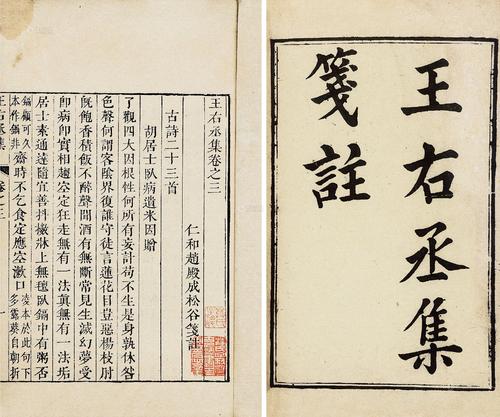 王右丞集
箋註
王右丞集卷之三
仁和趙殿成松谷箋註
古詩二十三首
胡居士臥病遺米因贈
了觀四大因根性何所有妄計苟不生是身孰休咎
色聲何謂客陰界復誰守徒言蓮花目豈惡楊枝肘
既飽香積飯不醉聲聞酒有無斷常見生滅幻夢受
即病即實相趨空定狂走無有一法真無有一法垢
居士素通達隨宜善抖擻牀上無氈臥鎘中有粥否
鎘顧可久本作鍋非齋時不乞食定應空漱口凌本於此句下多露葵自朝折
王右丞集 卷之三 一